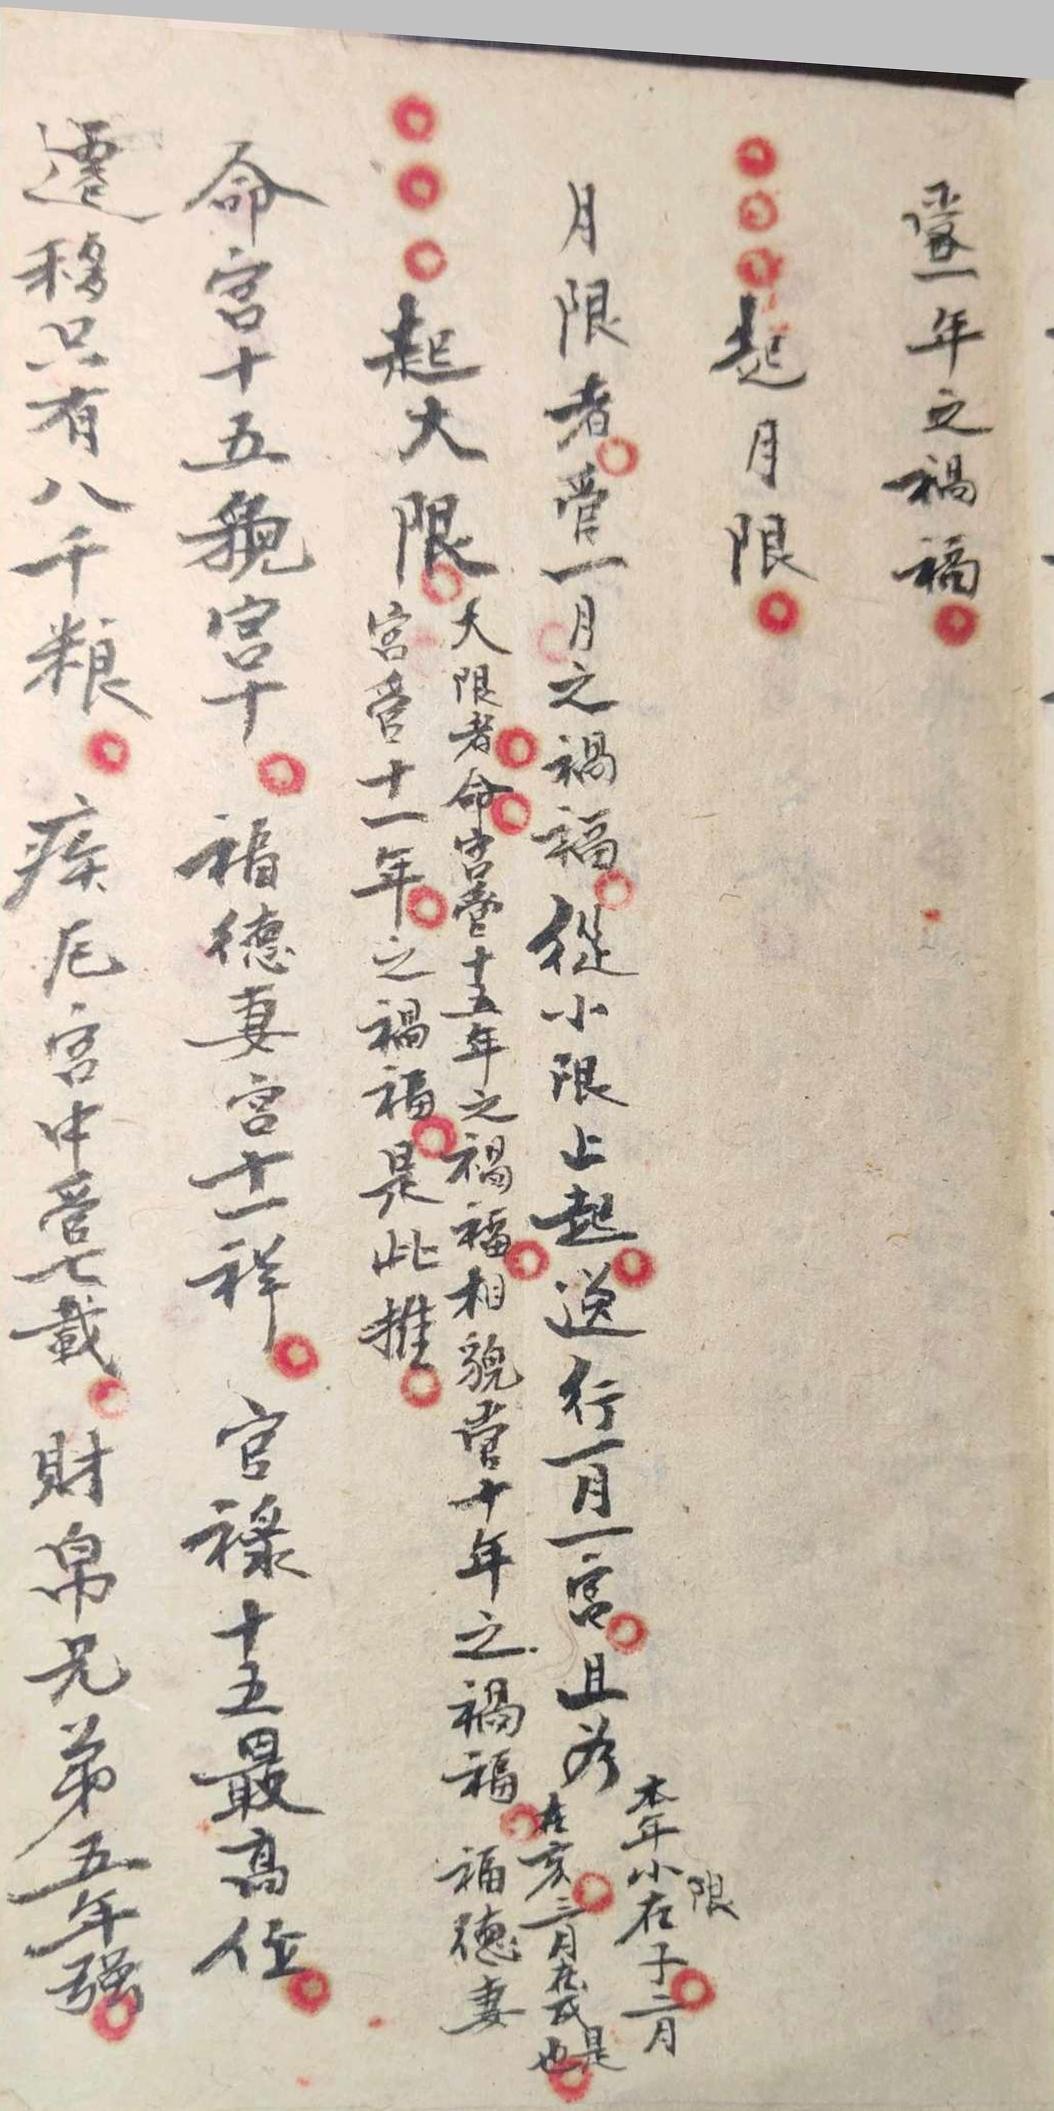 管一年之禍福
起月限
月限者管一月之禍福從小限上起逆行一月一宮且如
本年小限在子二月
在亥三月在戌是也
起大限
大限者命宮管十五年之禍福相貌管十年之禍福福德妻
宮管十一年之禍福是此推
命宮十五貌宮十福德妻宮十一祥官祿十五最高位
遷移只有八千粮疾厄宮中管七載財帛兄弟五年強